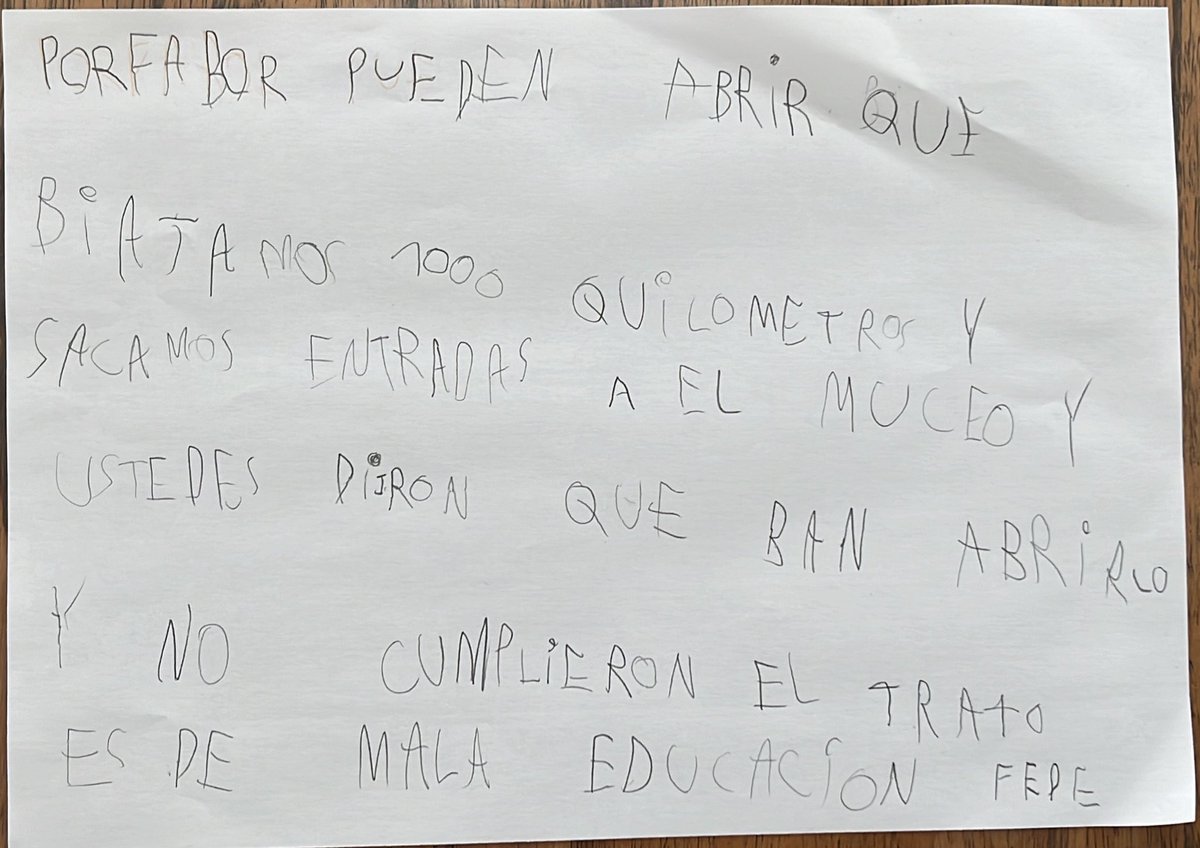 PORFABOR PUEDEN ABRIR QUE
BIATAMOS 1000 QUILOMETROS Y
SACAMOS ENTRADAS A EL MUCEO Y
USTEDES DIJRON QUE BAN ABRIRLO
Y NO CUMPLIERON EL TRATO
ES DE MALA EDUCACION FEPE